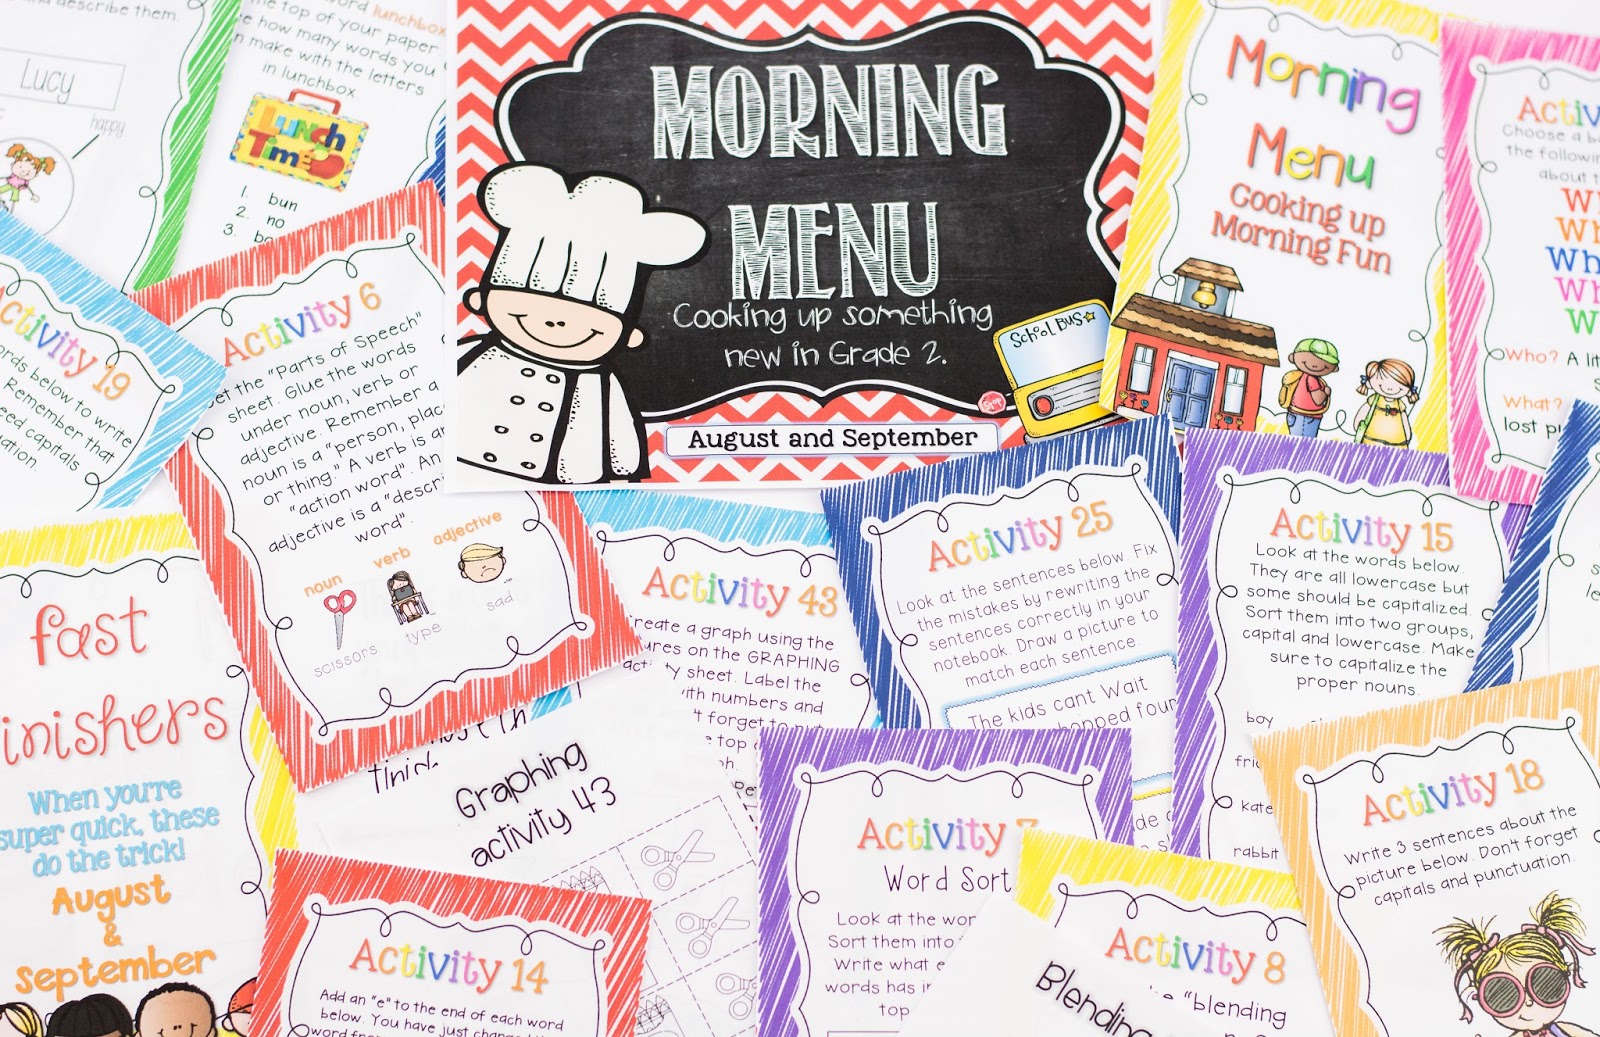 and describe them.
Lucy
happy
word lunchbox
the top of your paper
how many words you
can make with the letters
in lunchbox.
Lunch
Time
1. bun
2. no
3.
MORNING
MENU
Cooking up something
new in Grade 2.
School Bus
August and September
Morning
Menu
Cooking up
Morning Fun
Choose a
the following
about
Who? A
What?
lost
Activity 19
below to write
Remember that
need capitals
Activity 6
the "Parts of Speech"
sheet. Glue the words
under noun, verb or
adjective. Remember a
noun is a "person, place
or thing." A verb is an
"action word". An
adjective is a "describ
word".
noun
verb
adjective
scissors
type
sad
fast
inishers
When you're
super quick, these
do the trick!
August
&
September
Activity 43
Create a graph using the
on the GRAPHING
sheet. Label the
with numbers and
forget to
top
Graphing
activity 43
Activity 25
Look at the sentences below. Fix
the mistakes by rewriting the
sentences correctly in your
notebook. Draw a picture to
match each sentence.
The kids cant Wait
chopped four
Activity 15
Look at the words below.
They are all lowercase but
some should be capitalized.
Sort them into two groups,
capital and lowercase. Make
sure to capitalize the
proper nouns.
boy
kate
rabbit
Activity 14
Add an "e" to the end of each word
below. You have just
Activity 7
Word Sort
Look at the
Sort them into
Write what
words has
top
Activity 8
"blending
Blending
Activity 18
Write 3 sentences about the
picture below. Don't forget
capitals and punctuation.